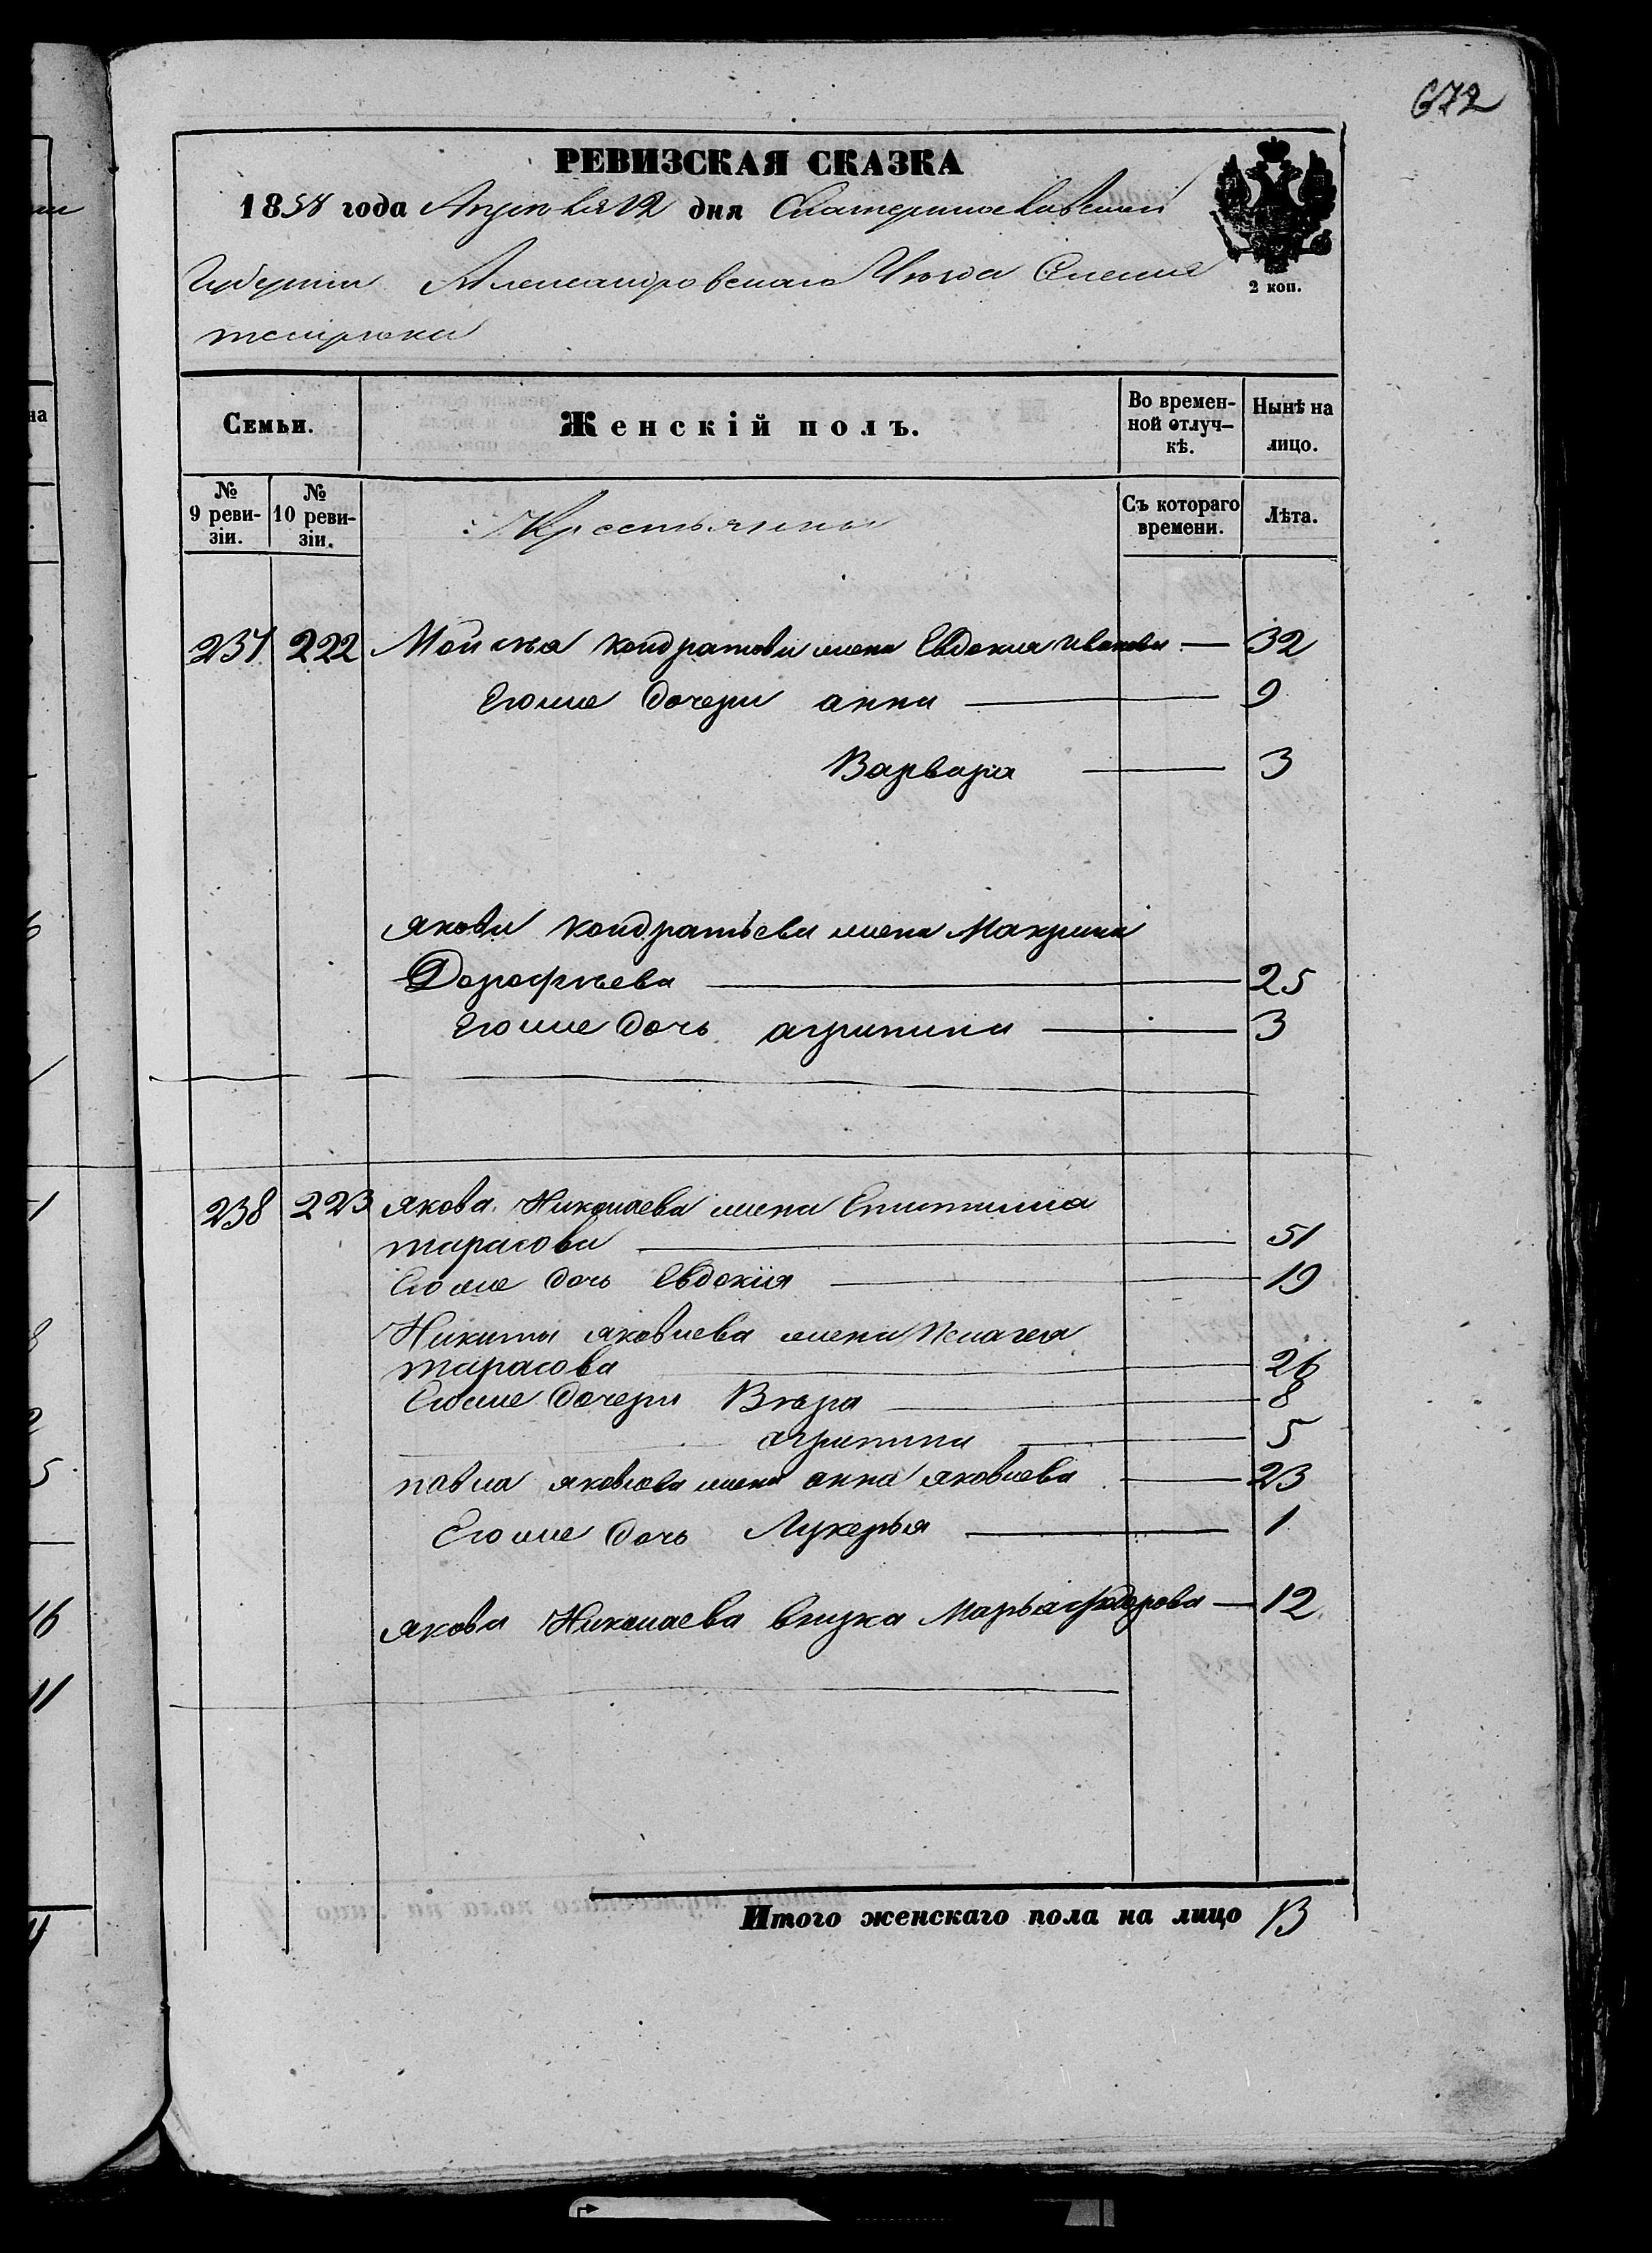 672
РЕВИЗСКАЯ СКАЗКА
1858 года Апреля 12 дня Екатеринославской
Губернии Александровскаго Уезда Селения
темрюка
2 коп.
Семьи.
Женскій полъ.
Во времен-
ной отлуч-
кѣ.
Нынѣ на
лицо.
№
9 реви-
зіи.
№
10 реви-
зіи.
Крестьяны
Съ котораго
времени.
Лѣта.
237 222 Мойсѣя кондратова жена Евдокия иванова — 32
Его же дочери анна — 9
Варвара — 3
якова кондратьева жена Макрина
Дорофѣева — 25
Его же дочь агрипина — 3
238 223 якова Николаева жена Епистимия
тарасова — 51
Его же дочь Евдокия — 19
Никиты яковлева жена Пелагея
тарасова — 26
Его же дочери Вѣра — 8
агрипина — 5
павла яковлева жена анна яковлева — 23
Его же дочь Лукерья — 1
якова Николаева внука Марья федорова — 12
Итого женскаго пола на лицо 13